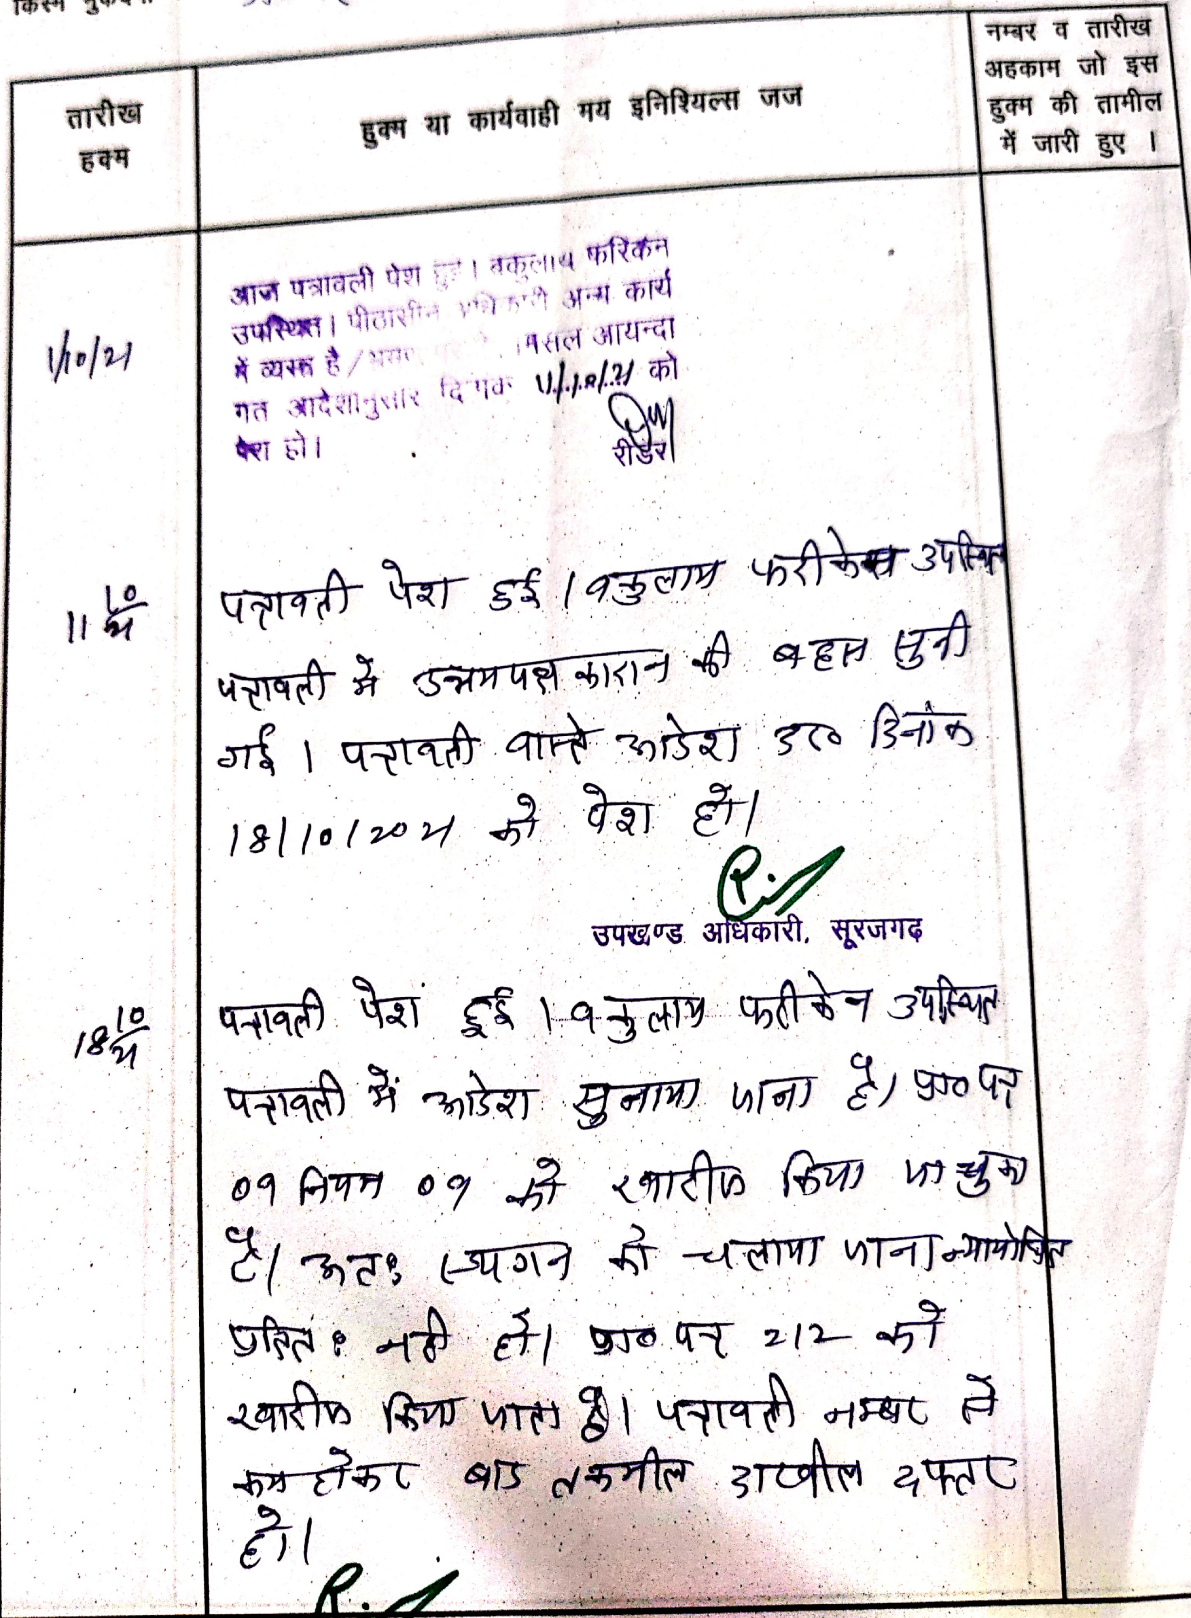 किस्म
नम्बर व तारीख
अहकाम जो इस
हुक्म की तामील
में जारी हुए ।
तारीख
हक्म
हुक्म या कार्यवाही मय इनिश्यिल्स जज
1/10/21
आज पत्रावली पेश हुई । वकुलाय फरिकेन
उपस्थित । पीठासीन अधिकारी अन्य कार्य
में व्यस्त है / मिसल आयन्दा
गत आदेशानुसार दिनांक 11/10/21 को
पेश हो ।
रीडर
11 10/21
पत्रावली पेश हुई । वकुलाय फरीकेन उपस्थित
पत्रावली में उभयपक्षकारान की बहस सुनी
गई । पत्रावली वास्ते आदेश उ० दिनांक
18/10/2021 को पेश हो।
उपखण्ड अधिकारी, सूरजगढ
18 10/21
पत्रावली पेश हुई । वकुलाय फरीकेन उपस्थित
पत्रावली में आदेश सुनाया जाना है। प्रा० पत्र
09 नियम 09 को खारीज किया जा चुका
है। अतः स्थगन को चलाया जाना न्यायोचित
प्रतित: नही हो। प्रा० पत्र 212 को
खारीज किया जाता है। पत्रावली नम्बर से
कम होकर बाद तकमील दाखील दफ्तर
हो।